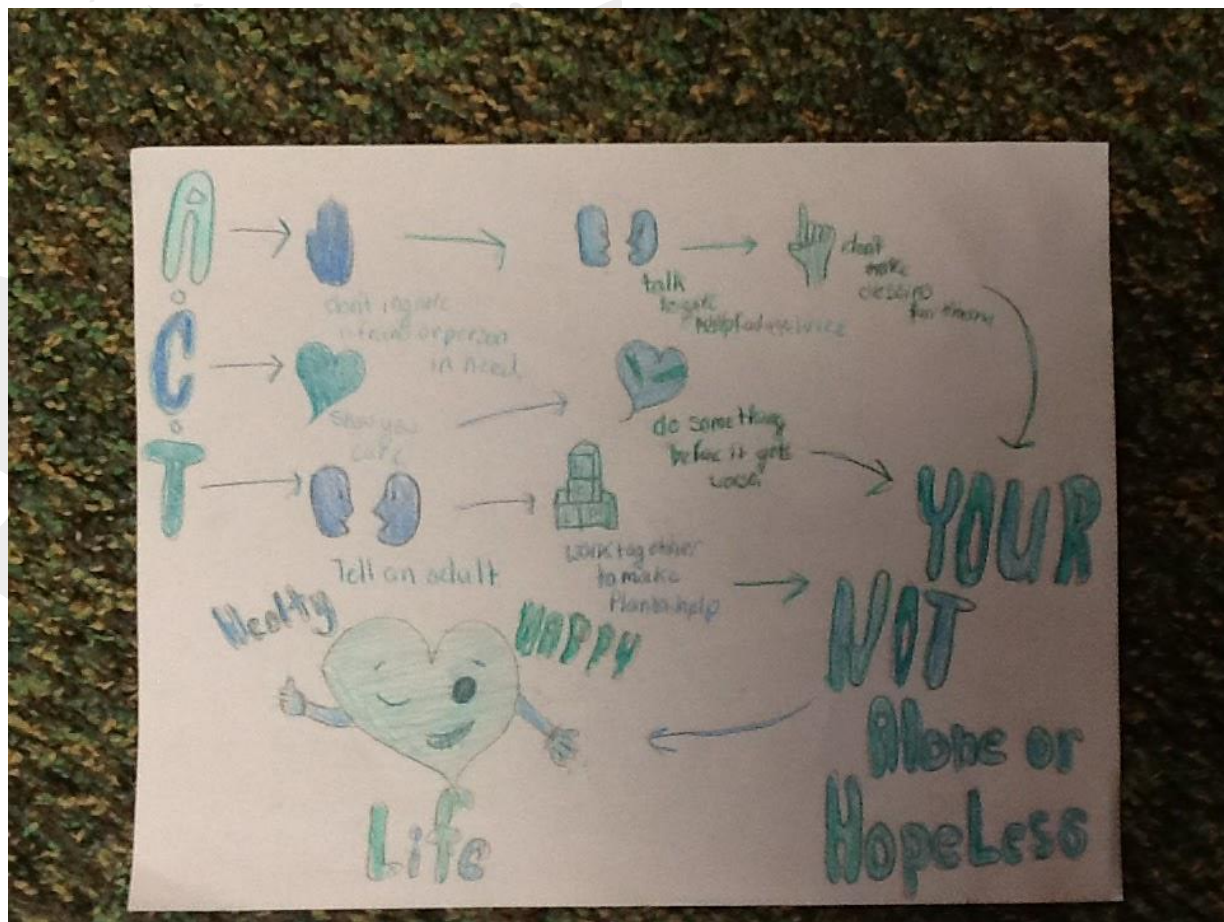 A
don't ingnore
a friend or person
in need
talk
to give
helpful advice
don't
make
for them
C
show you
care
do something
before it gets
T
Tell an adult
work together
to make
Plan to help
YOUR
NOT
Alone or
HopeLess
Healty
HAPPY
Life